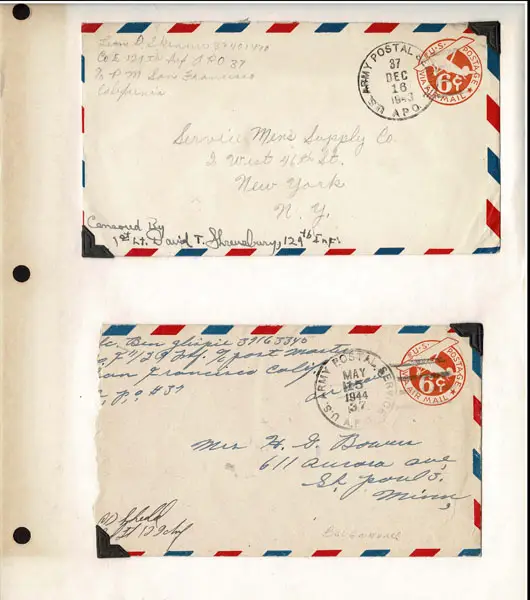 Leon D. Skranco 37401470
Co E 129th Inf APO 37
% P.M. San Francisco
California
U.S. ARMY POSTAL S
37
DEC
16
1943
A.P.O.
U.S. POSTAGE
VIA AIR MAIL
6¢
Service Men's Supply Co.
2 West 46th St.
New York
N. Y.
Censored By
1st Lt. David T. Shrewsbury, 129th Inf.
Ben 39163340
129 Inf. % post Master
San Francisco Calif
#37
U.S. ARMY POSTAL SERVICE
MAY
15
1944
37
A.P.O.
U.S. POSTAGE
VIA AIR MAIL
6¢
Mrs H. G. Bowers
611 aurora ave,
St. paul
Minn,
129 Inf